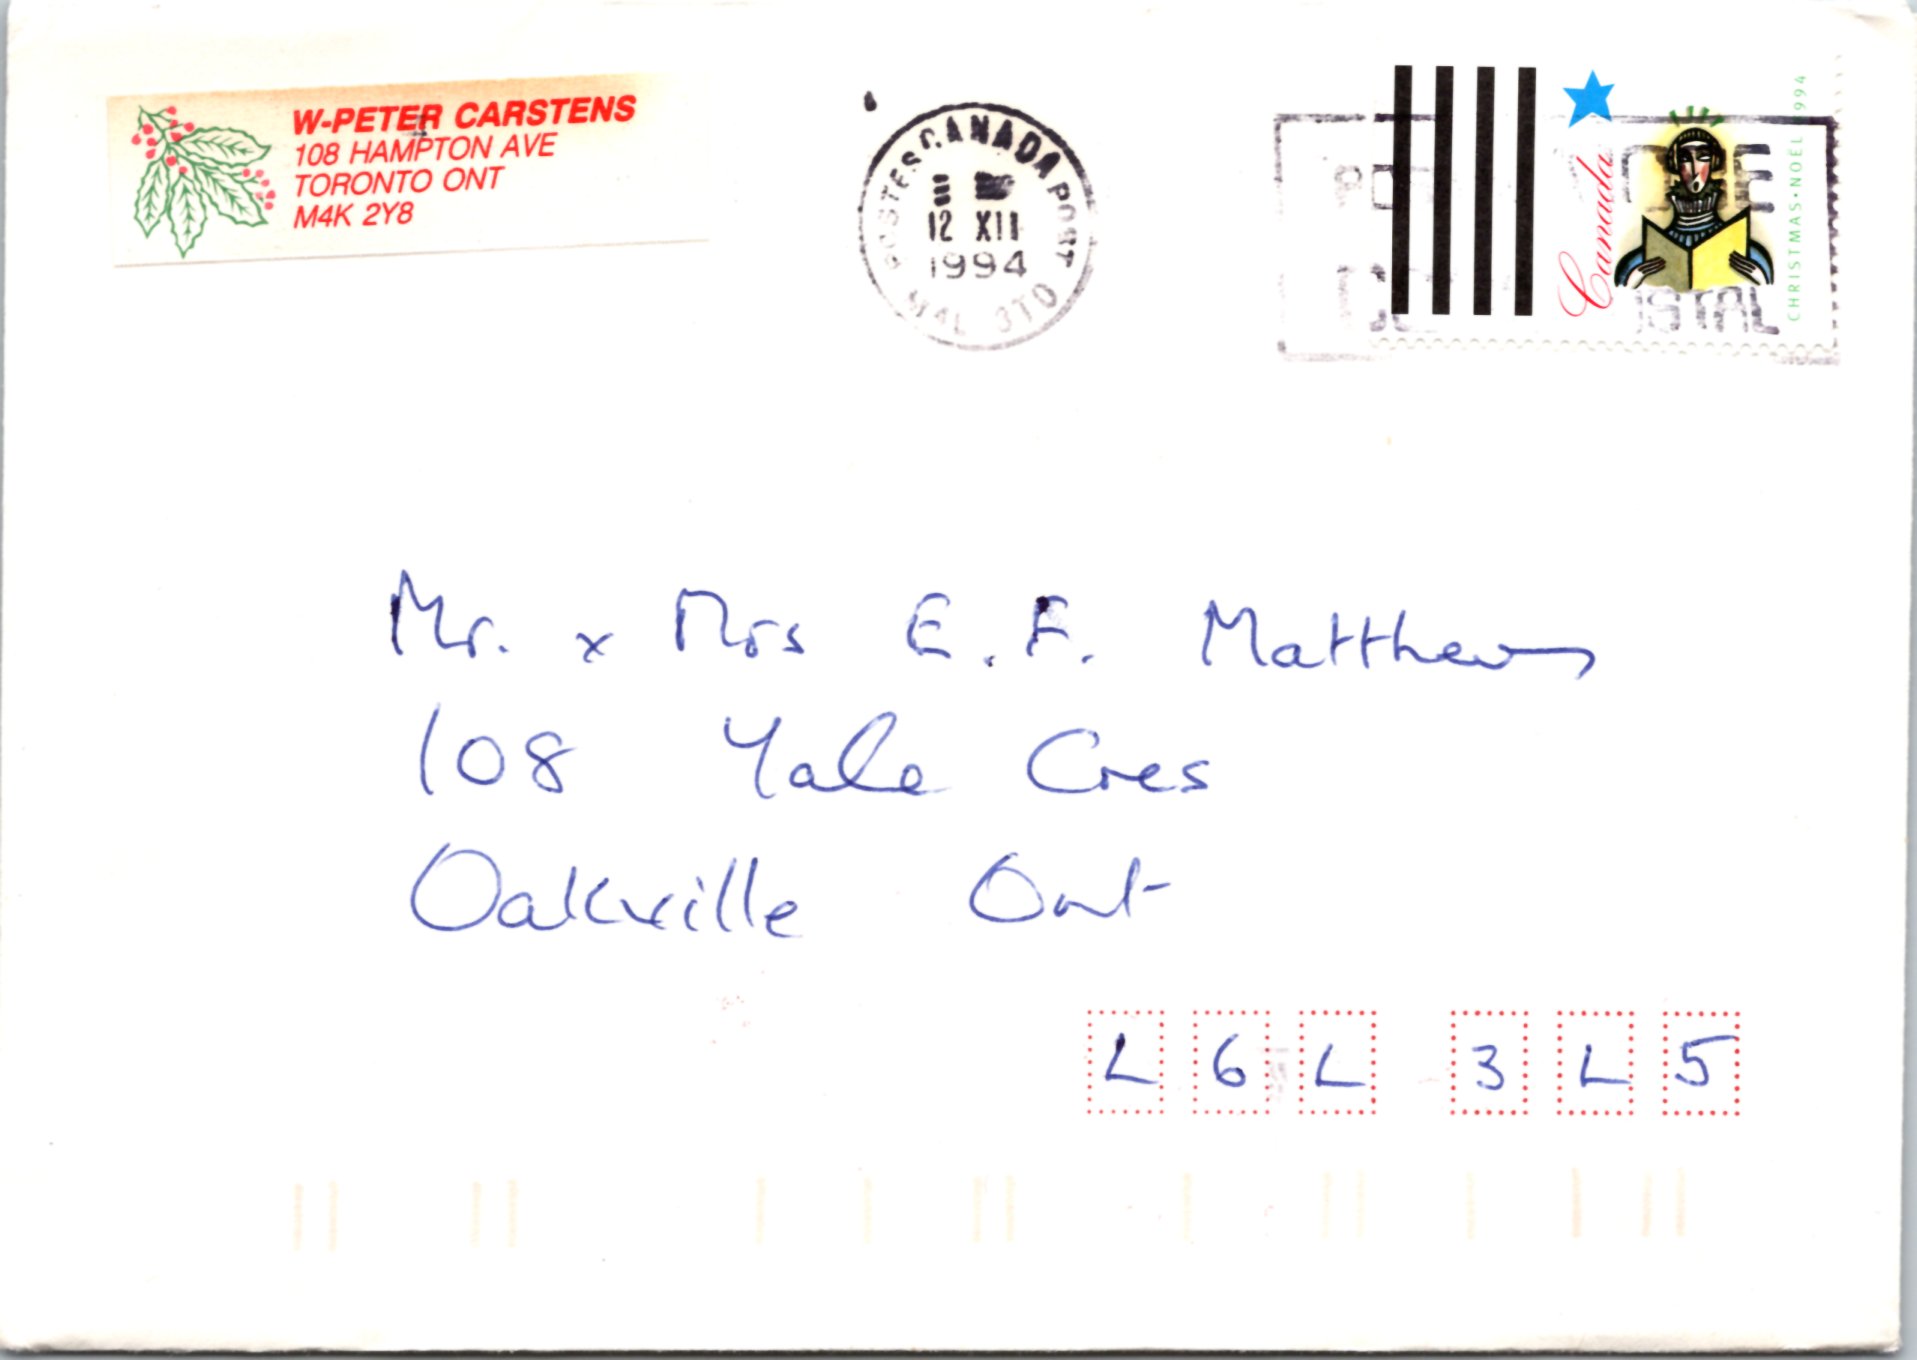 W-PETER CARSTENS
108 HAMPTON AVE
TORONTO ONT
M4K 2Y8
POSTES CANADA POST
12 XII
1994
M4L 3T0
Canada
CHRISTMAS • NOËL 1994
Mr. & Mrs E. F. Matthews
108 Yale Cres
Oakville Ont
L6L 3L5